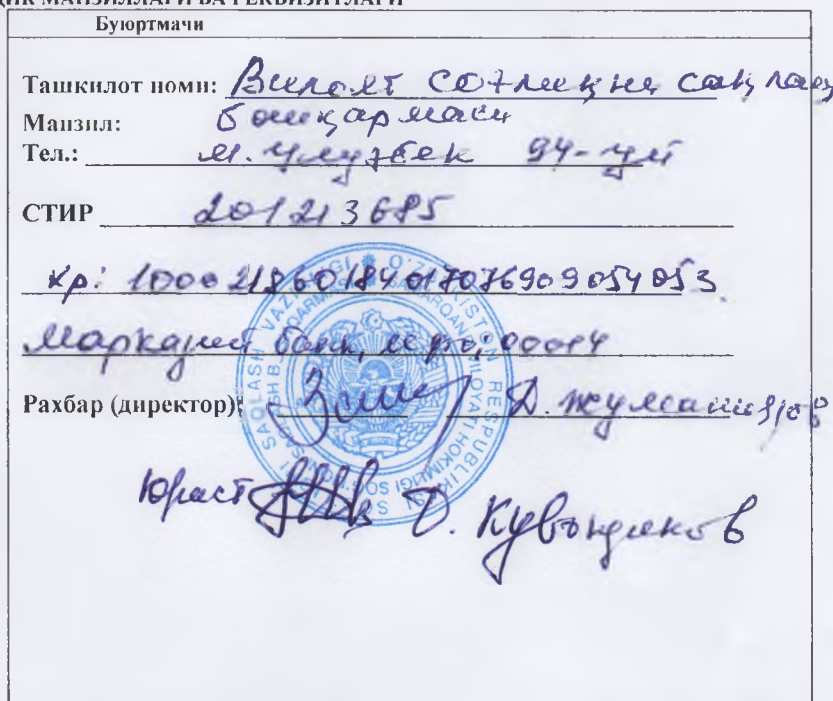 ИК МАНЗИЛЛАРИ ВА РЕКВИЗИТЛАРИ
Буюртмачи
Ташкилот номи: Вилоят соғлиқни сақлаш
Манзил: бошқармаси
Тел.: М. Улуғбек 94-уй
СТИР 201213685
Хр: 100021860184017076909054053
Марказий банк, мфо, 00014
Рахбар (директор): Д.
Юрист Д. Кувондиков